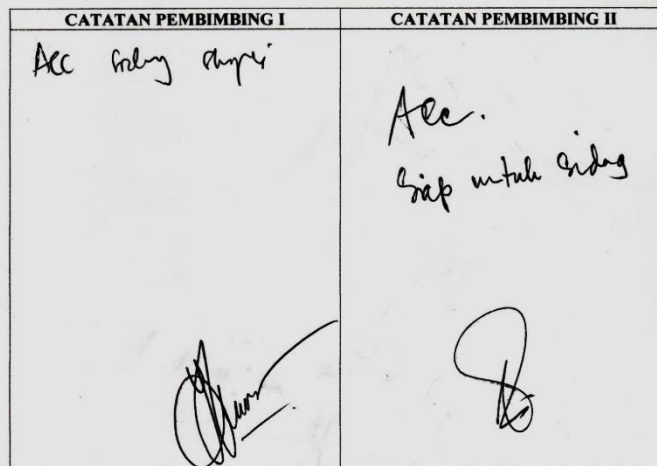 CATATAN PEMBIMBING I
CATATAN PEMBIMBING II
Acc sidang skripsi
Acc.
Siap untuk sidang